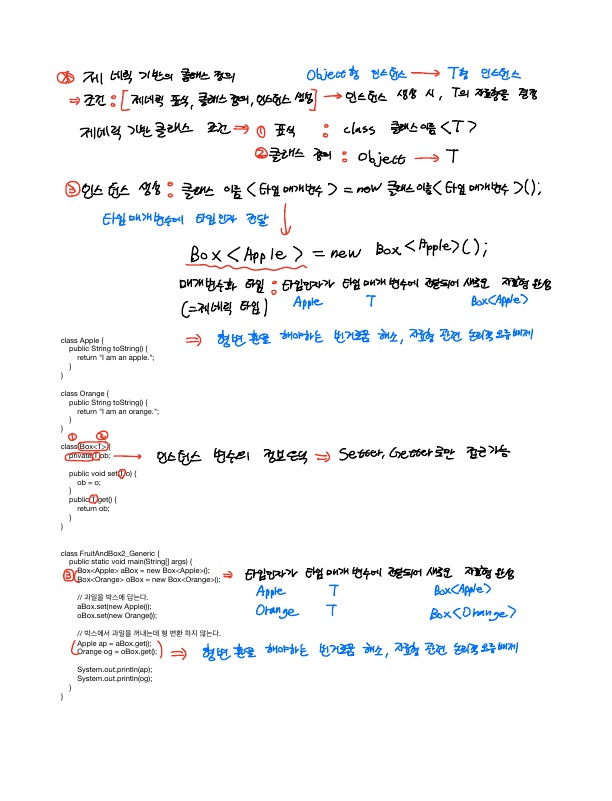 ※ 제네릭 기반의 클래스 정의 Object형 인스턴스 → T형 인스턴스
⇒ 조건 : [제네릭 표식, 클래스 정의, 인스턴스 생성] → 인스턴스 생성 시, T의 자료형을 결정
제네릭 기반 클래스 조건 ⇒ ① 표식 : class 클래스이름<T>
② 클래스 정의 : Object → T
③ 인스턴스 생성 : 클래스 이름<타입매개변수> = new 클래스이름<타입매개변수>();
타입매개변수에 타입인자 전달
Box<Apple> = new Box<Apple>();
매개변수화 타입 : 타입인자가 타입 매개변수에 전달되어 새로운 자료형 완성
(=제네릭 타입) Apple T Box<Apple>
⇒ 형변환을 해야하는 번거로움 해소, 자료형 관련 논리적오류배제
class Apple {
public String toString() {
return "I am an apple.";
}
}
class Orange {
public String toString() {
return "I am an orange.";
}
}
① ②
class Box<T> {
private T ob; → 인스턴스 변수의 정보은닉 ⇒ Setter, Getter로만 접근가능
public void set(T o) {
ob = o;
}
public T get() {
return ob;
}
}
class FruitAndBox2_Generic {
public static void main(String[] args) {
③ Box<Apple> aBox = new Box<Apple>(); ⇒ 타입인자가 타입 매개변수에 전달되어 새로운 자료형 완성
Box<Orange> oBox = new Box<Orange>(); Apple T Box<Apple>
Orange T Box<Orange>
// 과일을 박스에 담는다.
aBox.set(new Apple());
oBox.set(new Orange());
// 박스에서 과일을 꺼내는데 형 변환 하지 않는다.
Apple ap = aBox.get();
Orange og = oBox.get(); ⇒ 형변환을 해야하는 번거로움 해소, 자료형 관련 논리적오류배제
System.out.println(ap);
System.out.println(og);
}
}